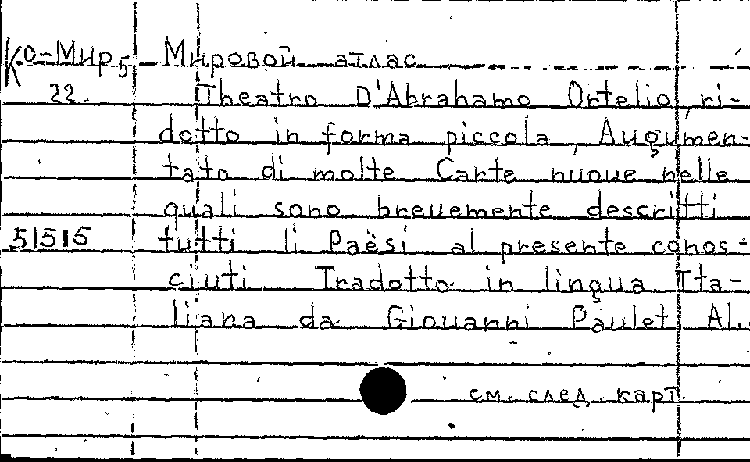 Ко-Мир5 Мировой атлас
22. Theatro D'Abrahamo Ortelio, ri-
dotto in forma piccola, Augumen-
tato di molte Carte nuoue nelle
quali sono breuemente descritti
51515 tutti li Paèsi al presente conos-
ciuti Tradotto in lingua Ita-
liana da Giouanni Paulet Al.
см. след. карт